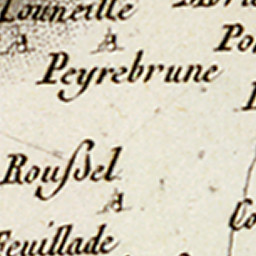 Louneille
Peyrebrune
Rouſsel
Feuillade